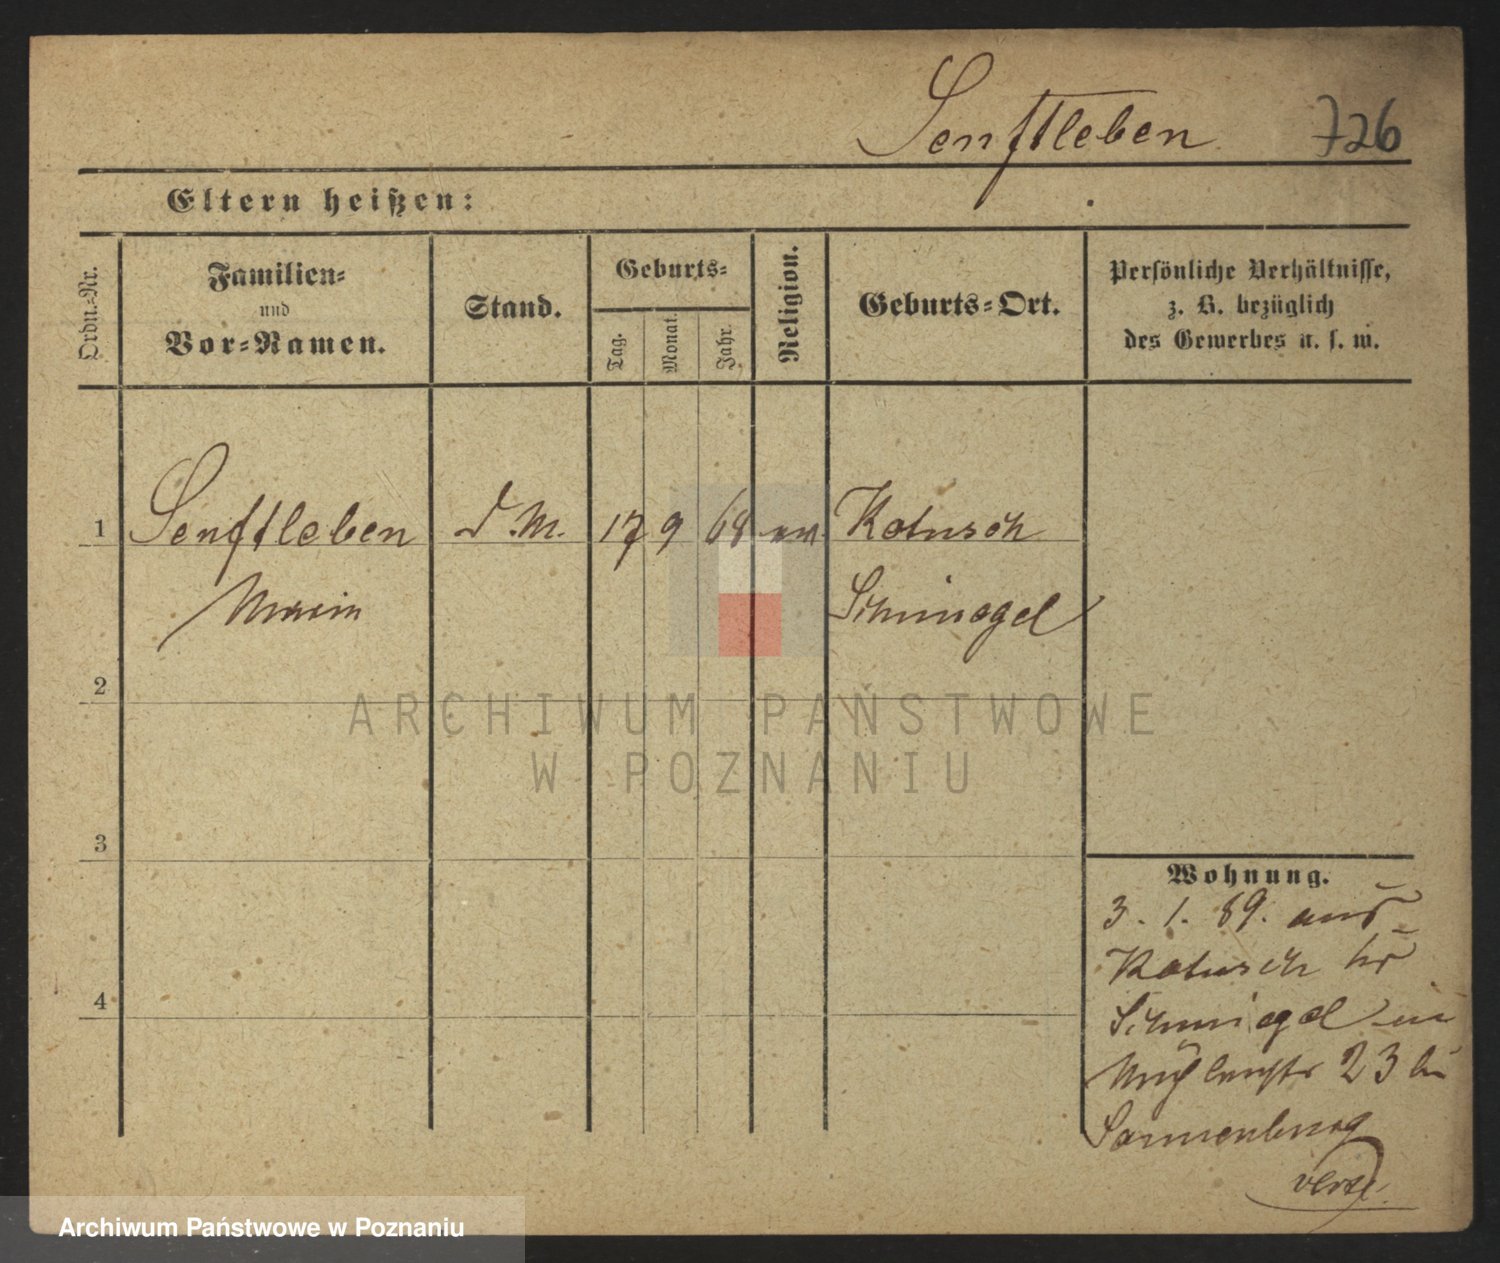 Senftleben 726
Eltern heißen:
Ordn.-Nr.
Familien-
und
Vor-Namen.
Stand.
Geburts-
Tag.
Monat.
Jahr.
Religion.
Geburts-Ort.
Persönliche Verhältnisse,
z. B. bezüglich
des Gewerbes u. s. w.
1 Senftleben d. M. 17 9 68 ev. Kotusch
Marie Schmiegel
2
ARCHIWUM PAŃSTWOWE
W POZNANIU
3
4
Wohnung.
3. 1. 89. aus
Kotusch Kr
Schmiegel in
Mühlenstr 23 bei
Sonnenburg
verte
Archiwum Państwowe w Poznaniu